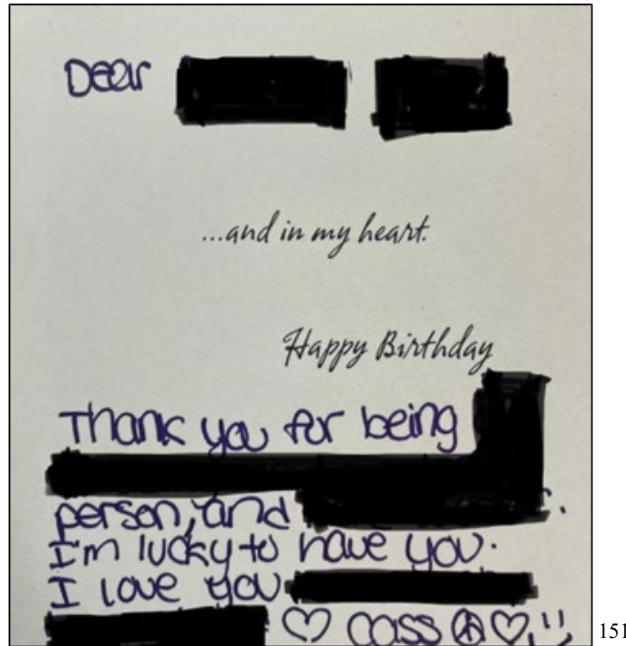 Dear
...and in my heart.
Happy Birthday
Thank you for being
person, and
I'm lucky to have you.
I love you
♡ Cass ☮♡ :)
151